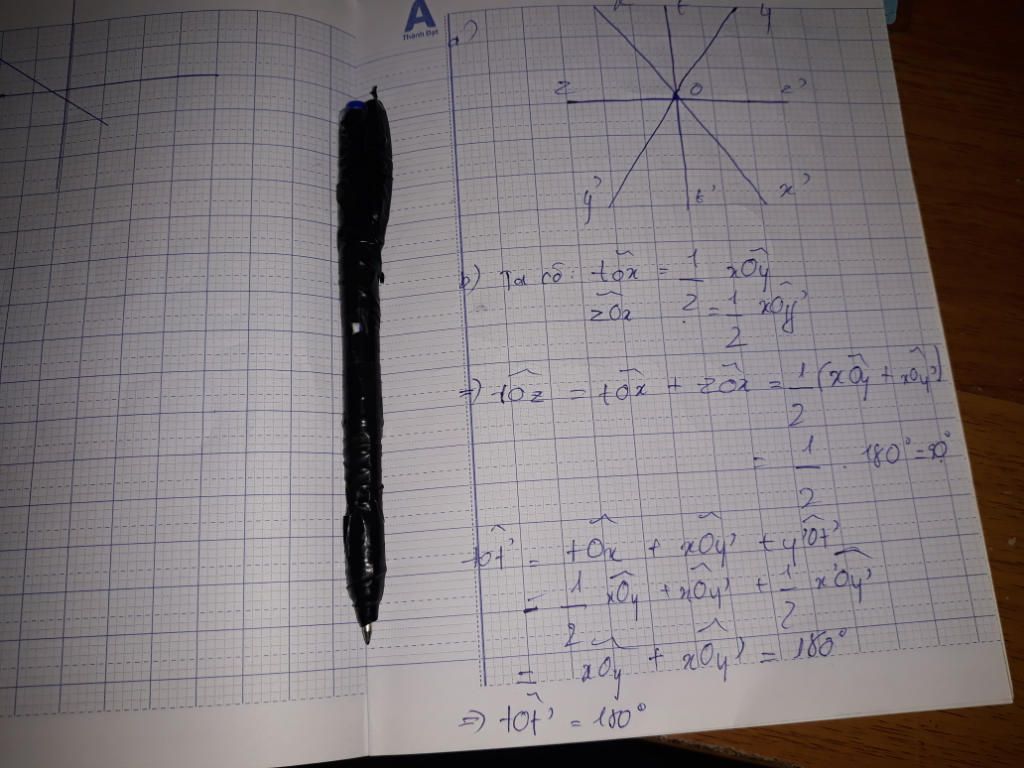 A
Thành Đạt
a)
x t y
z O z'
y' t' x'
b) Ta có: tOx = 1/2 xOy
zOx = 1/2 xOy'
=) tOz = tOx + zOx = 1/2 (xOy + xOy')
= 1/2 . 180° = 90°
tOt' = tOx + xOy' + y'Ot'
= 1/2 xOy + xOy' + 1/2 x'Oy'
= xOy + xOy' = 180°
=) tOt' = 180°